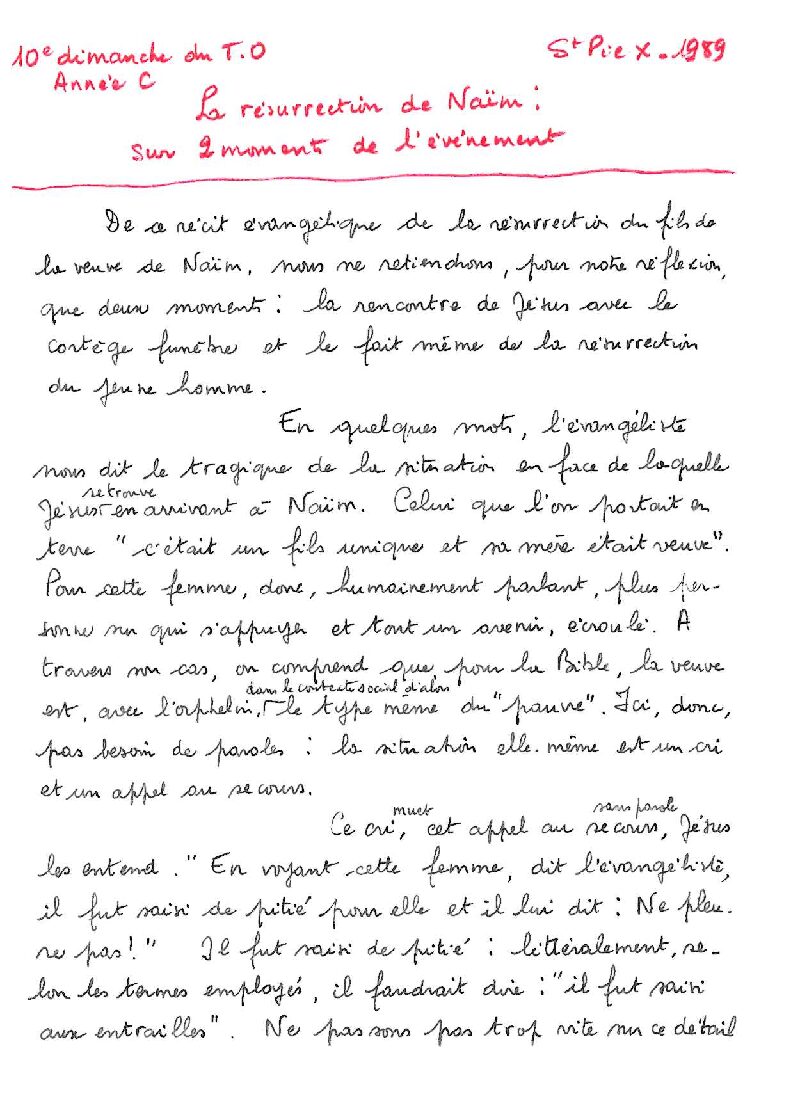 10e dimanche du T.O
St Pie X. 1989
Année C
La résurrection de Naïm :
sur 2 moments de l'événement
De ce récit évangélique de la résurrection du fils de
la veuve de Naïm, nous ne retiendrons, pour notre réflexion,
que deux moments : la rencontre de Jésus avec le
cortège funèbre et le fait même de la résurrection
du jeune homme.
En quelques mots, l'évangéliste
nous dit le tragique de la situation en face de laquelle
se trouve
Jésus en arrivant à Naïm. Celui que l'on portait en
terre "c'était un fils unique et sa mère était veuve".
Pour cette femme, donc, humainement parlant, plus per-
sonne sur qui s'appuyer et tout un avenir, écroulé. A
travers son cas, on comprend que, pour la Bible, la veuve
dans le contexte social d'alors
est, avec l'orphelin, le type même du "pauvre". Ici, donc,
pas besoin de paroles : la situation elle-même est un cri
et un appel au secours.
muet sans parole
Ce cri, cet appel au secours, Jésus
les entend. "En voyant cette femme, dit l'évangéliste,
il fut saisi de pitié pour elle et il lui dit : Ne pleu-
re pas!" Il fut saisi de pitié : littéralement, se-
lon les termes employés, il faudrait dire : "il fut saisi
aux entrailles". Ne passons pas trop vite sur ce détail